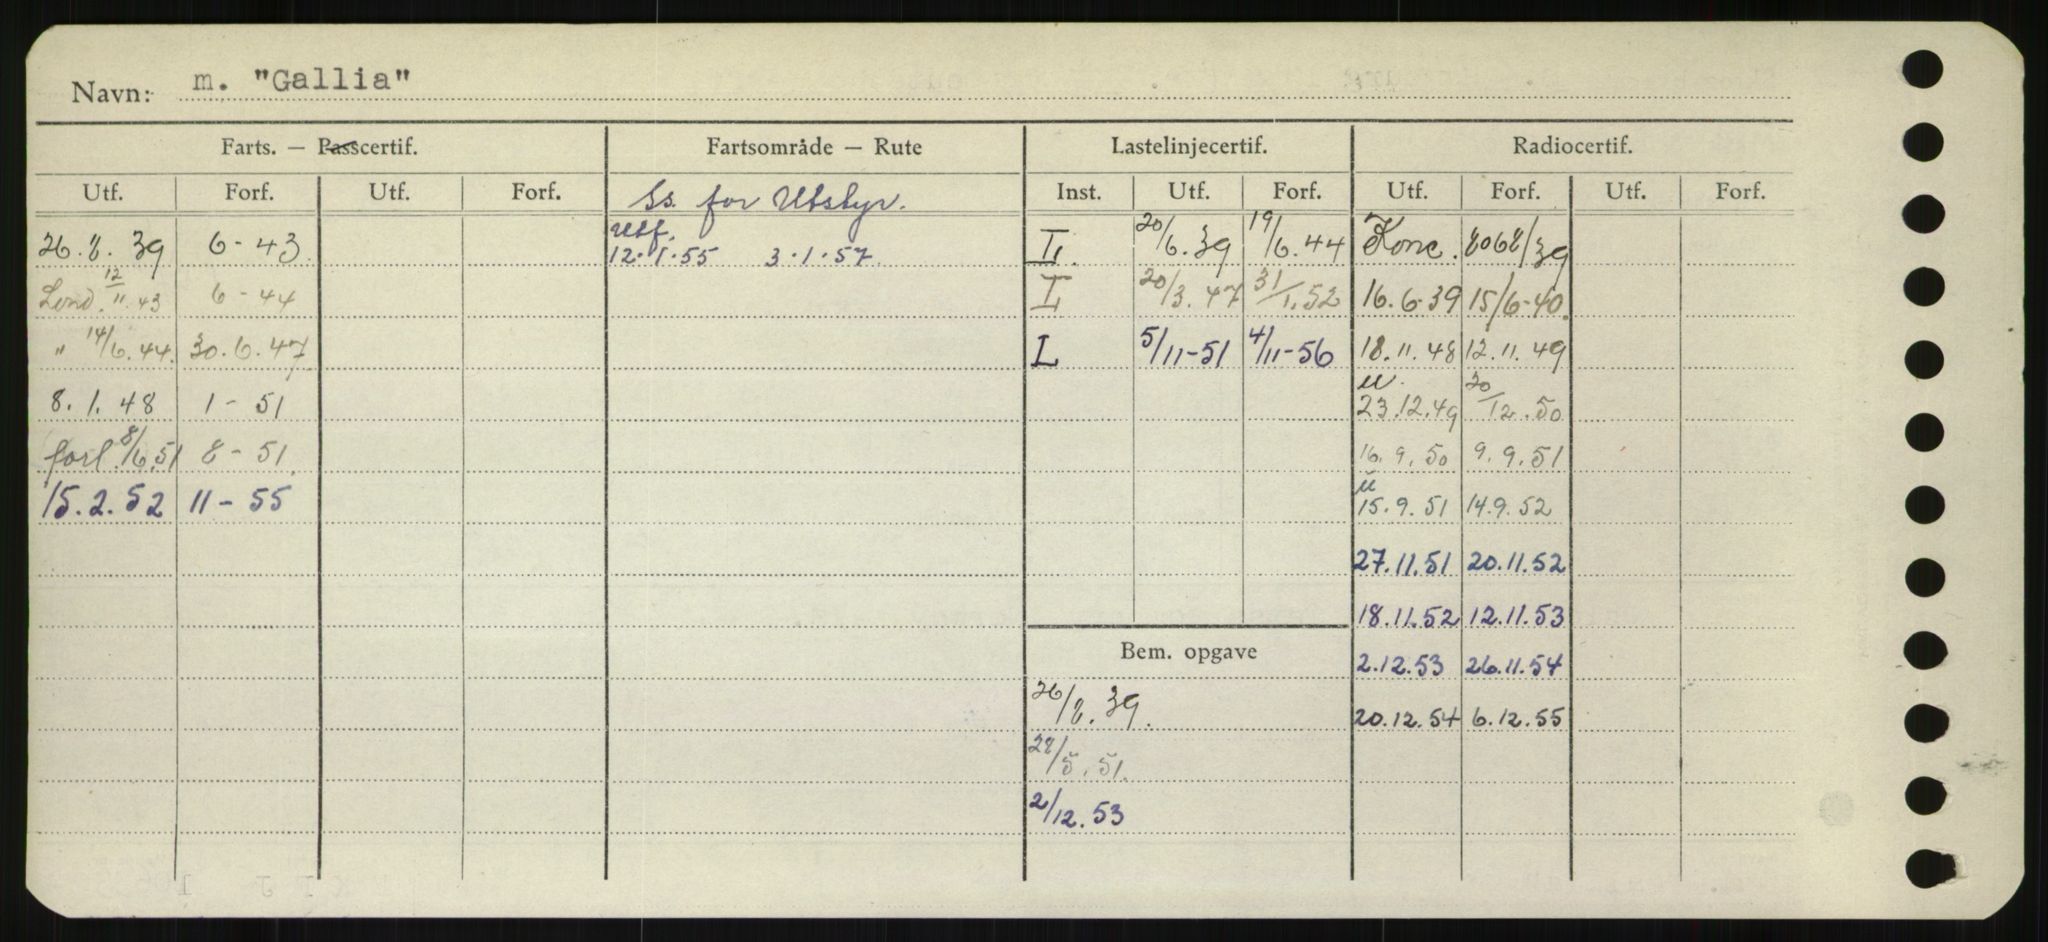 Navn: m. "Gallia"
Farts. — Passcertif. Fartsområde — Rute Lastelinjecertif. Radiocertif.
Utf. Forf. Utf. Forf. Ss. for Utstyr. Inst. Utf. Forf. Utf. Forf. Utf. Forf.
26.8.39 6-43 Utf. 12.1.55 3.1.57 20/6.39 19/6.44 Konc. 8068/39
Lond. 12/11.43 6-44 20/3.47 31/1.52 16.6-39 15/6-40.
" 14/6.44. 30.6.47 L 5/11-51 4/11-56 18.11.48 12.11.49
8.1.48 1-51 u. 23.12.49 20/12.50
forl. 8/6.51 8-51. 16.9.50 9.9.51
15.2.52 11-55 u 15.9.51 14.9.52
27.11.51 20.11.52
18.11.52 12.11.53
Bem. opgave 2.12.53 26.11.54
26/8.39. 20.12.54 6.12.55
28/5.51.
2/12.53